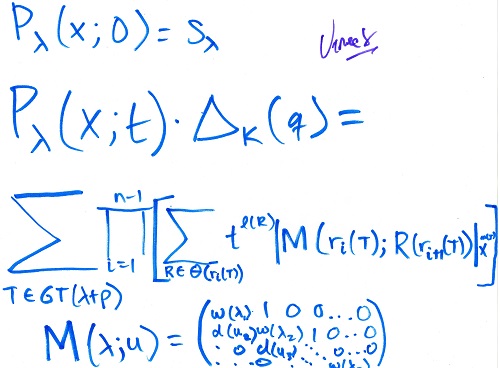 P_λ(x;0) = s_λ
P_λ(x;t) · Δ_K(q) =
∑_{T∈GT(λ+ρ)} ∏_{i=1}^{n-1} [ ∑_{R∈Θ(r_i(T))} t^{ℓ(R)} |M(r_i(T); R(r_{i+1}(T))|_x
M(λ;u) = ( w(λ_1) 1 0 0...0
d(u_2) w(λ_2) 1 0..0
0 d(u_3) ⋱ ... 0 ..0